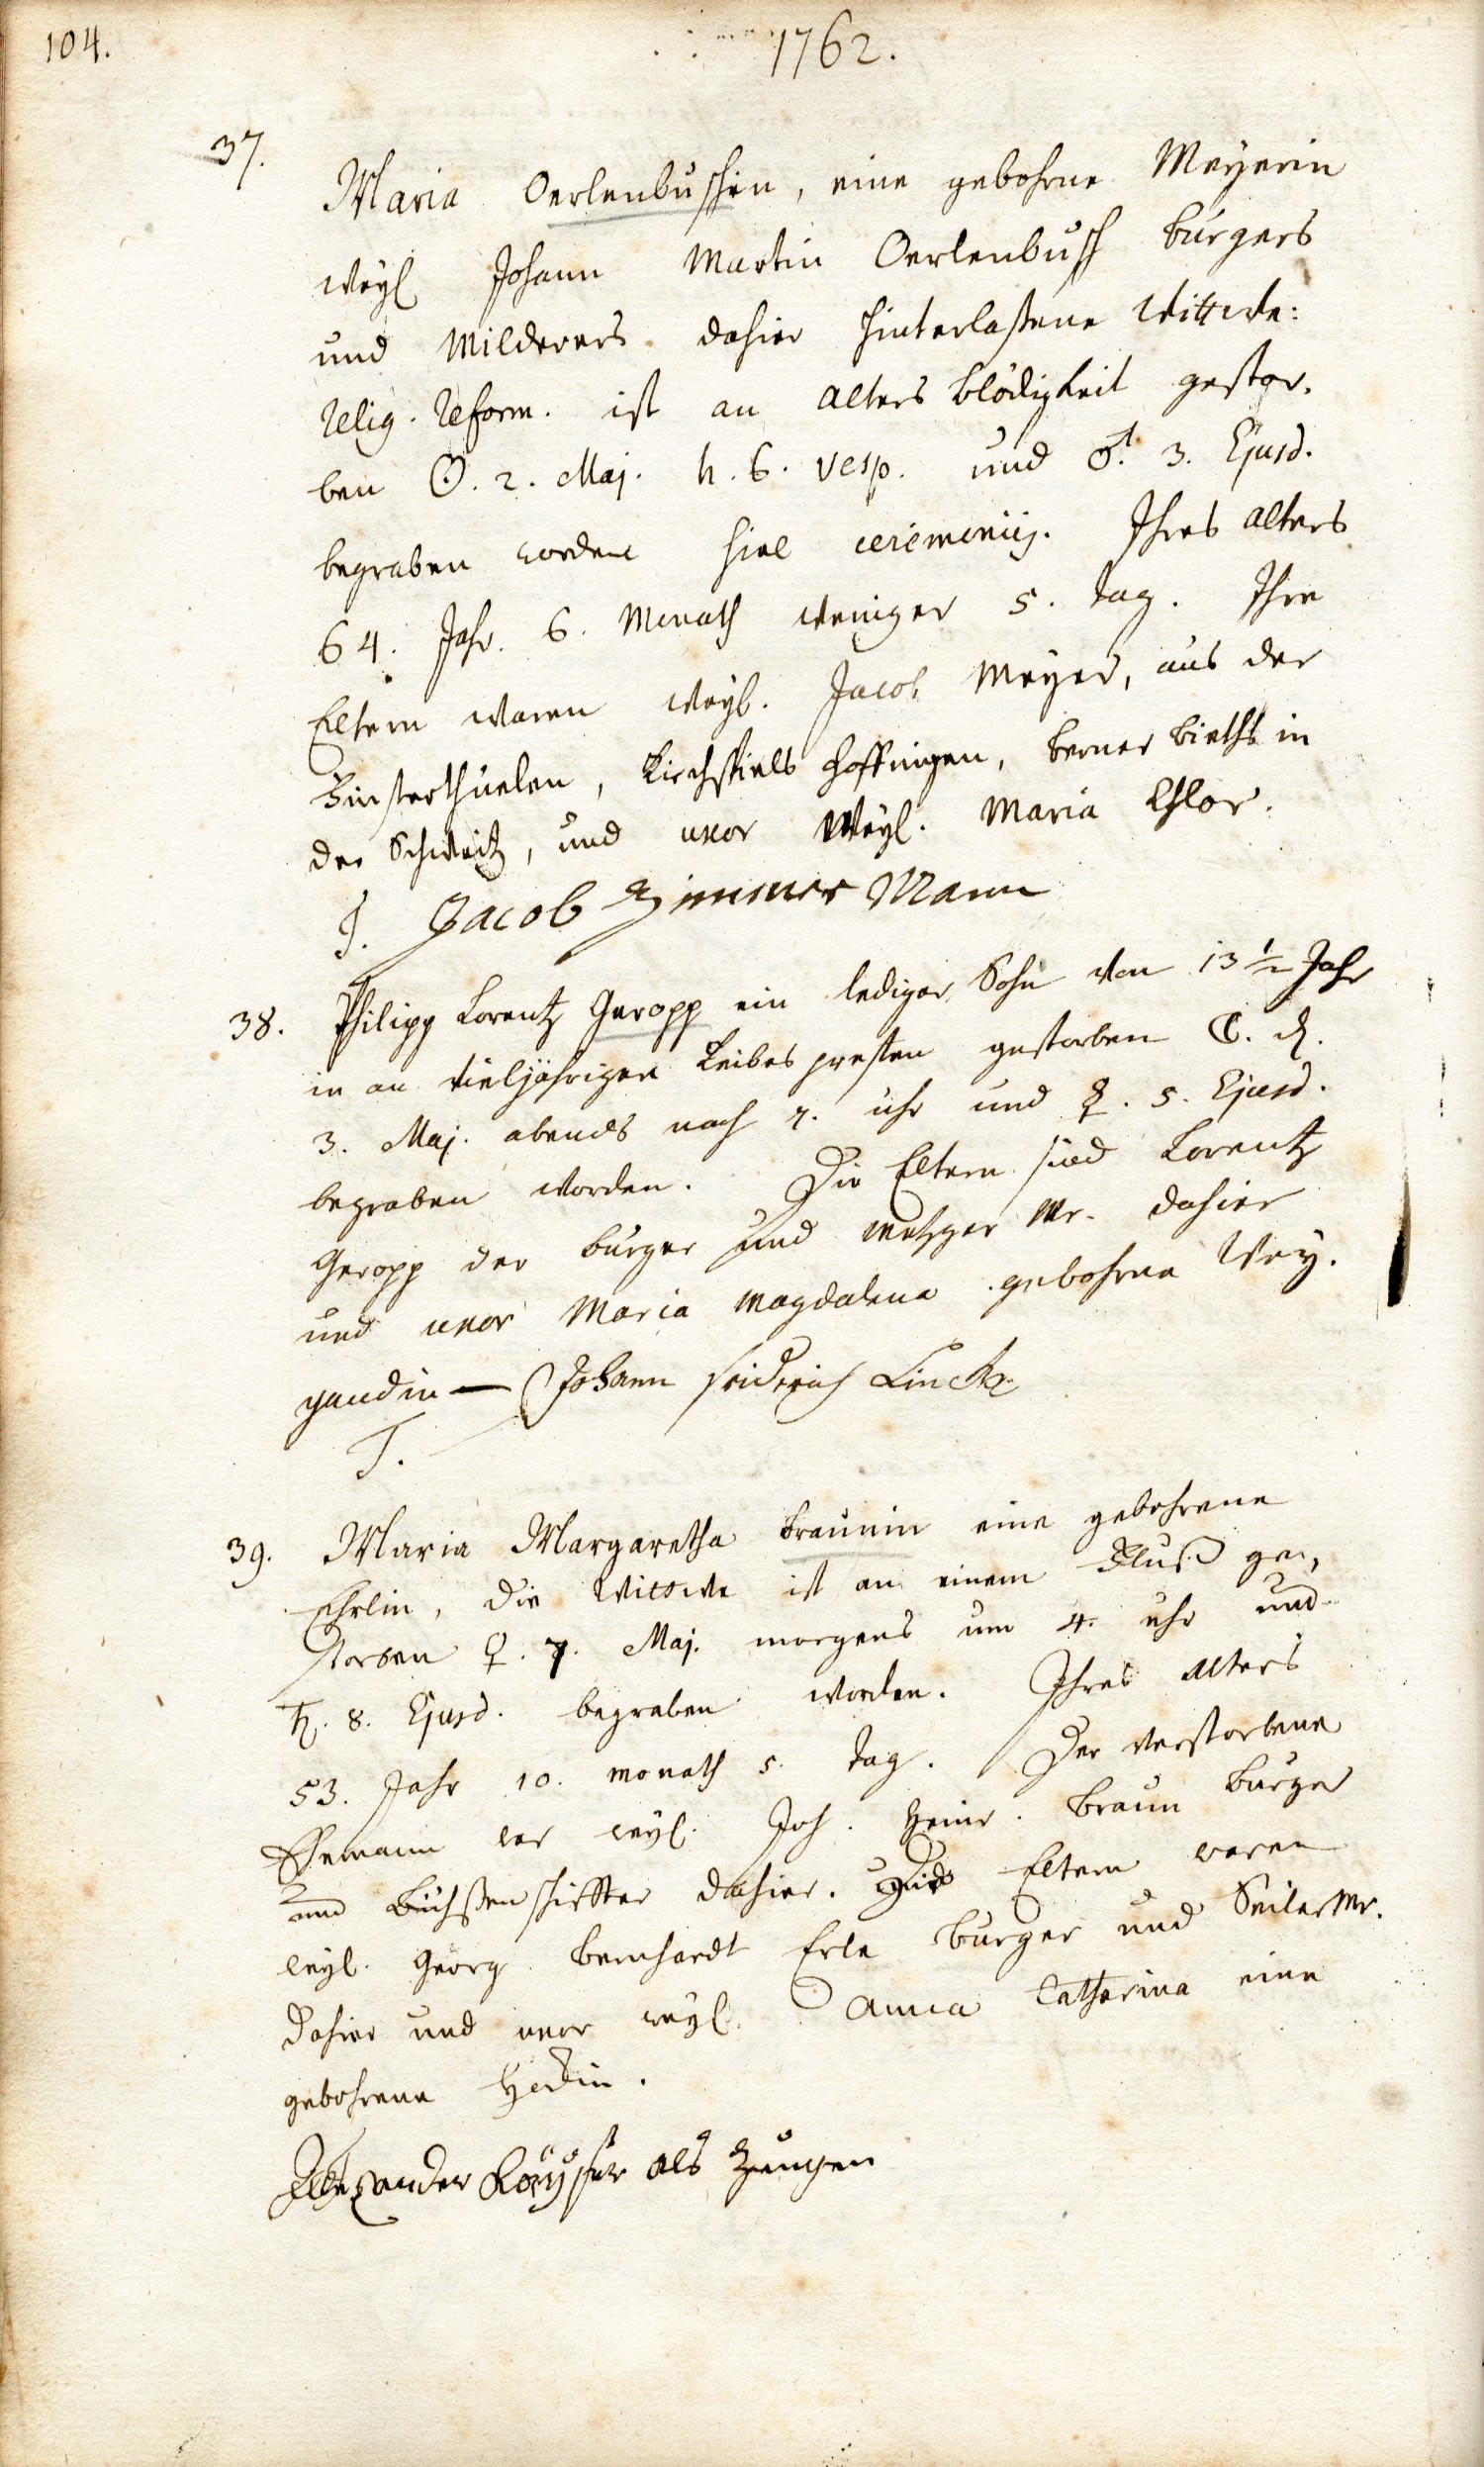 104.
1762.
37.
Maria Oerlenbuschin, eine gebohrne Meyerin
weyl Johann Martin Oerlenbusch burgers
und Milderers dahier hinterlaßene Wittwe:
Relig. Reform. ist an Alters blödigkeit gestor,
ben ☉. 2. Maj. h. 6. vesp. und ♂. 3. Ejusd.
begraben worden ceremoniis. Ihres alters
64. Jahr. 6. Monath weniger 5. tag. Ihre
Eltern waren weyl. Jacob Meyer, aus der
Kirchspiels Hoffnigen, berner bieths in
der Schweitz, und uxor Weyl. Maria
T. Jacob Zimmer Mann
38. Philipp Lorentz Geropp ein lediger Sohn von 13 ½ Jahr
in an vieljährigen Leibes presten gestorben ☾. d.
3. Maj. abends nach 7. uhr und ☿. 5. Ejusd.
begraben worden. Die Eltern sind Lorentz
Geropp der burger und Metzger Mr. dahier
und uxor Maria Magdalena gebohrne Wey,
gandin — Johann Friderich Linck
T.
39. Maria Margaretha Braunin eine gebohrene
Ehrlin, die Wittwe ist an einem Fluß ge,
storben ♀. 7. Maj. morgens um 4. uhr und
♄. 8. Ejusd. begraben worden. Ihres alters
53. Jahr 10. monath 5. tag. Der verstorbene
Ehemann war weyl. Joh. Heinr. Braun burger
und Büchßenschiffter dahier. Die Eltern waren
weyl. Georg Bernhardt Erle burger und Seiler Mr.
dahier und uxor weyl. Anna Catharina eine
gebohrene
Alexander Käyser als Zeugen